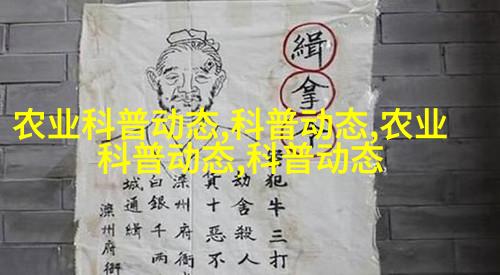 农业科普动态,科普动态,农业
科普动态,科普动态
緝拿
犯牛三打
劫舍殺人
十惡不
滦州府衙
白銀千两
城通緝
滦州府衙